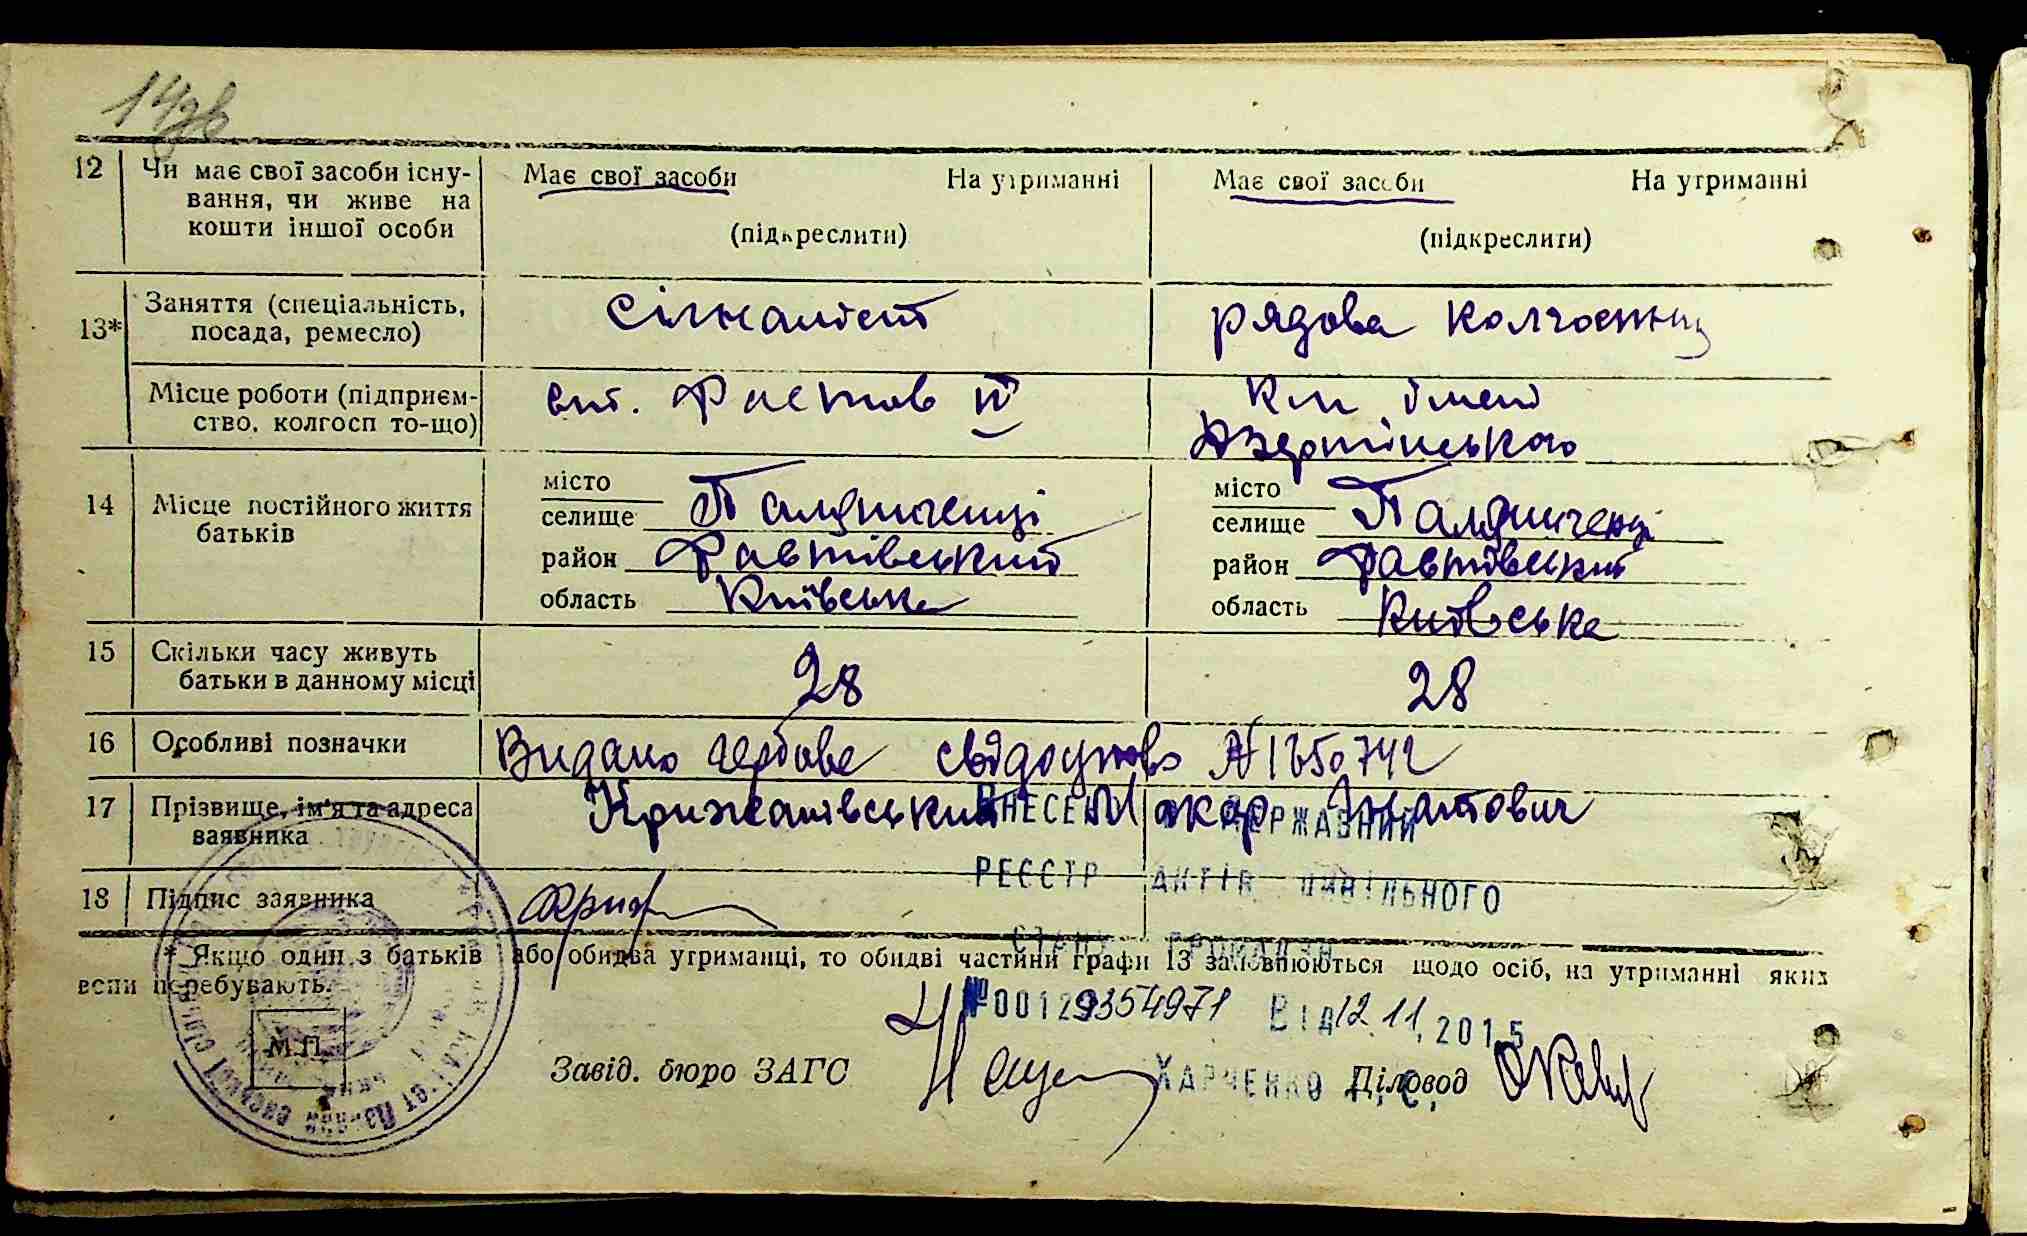 14зв
12 Чи має свої засоби існу-
вання, чи живе на
кошти іншої особи
Має свої засоби На утриманні
(підкреслити)
Має свої засоби На утриманні
(підкреслити)
13* Заняття (спеціальність,
посада, ремесло)
сігналіст
рядова колгоспниц
Місце роботи (підприєм-
ство, колгосп то-що)
ст. Фастов ІІ
імені
Дзержинського
14 Місце постійного життя
батьків
місто
селище
район Фастівський
область Київська
місто
селище
район Фастівський
область Київська
15 Скільки часу живуть
батьки в данному місці
28
28
16 Особливі позначки
Видано гербове свідоцтво №
17 Прізвище, ім'я та адреса
ваявника
Крижанівський Макар
ВНЕСЕНО ДЕРЖАВНИЙ
РЕЄСТР АКТІВ ЦИВІЛЬНОГО
СТАНУ ГРОМАДЯН
18 Підпис заявника
* Якщо один з батьків або обидва утриманці, то обидві частини графи 13 заповнюються щодо осіб, на утриманні яких
вепи перебувають.
№00129354971 Від 12.11.2015
М.П.
Завід. бюро ЗАГС
ХАРЧЕНКО
Діловод